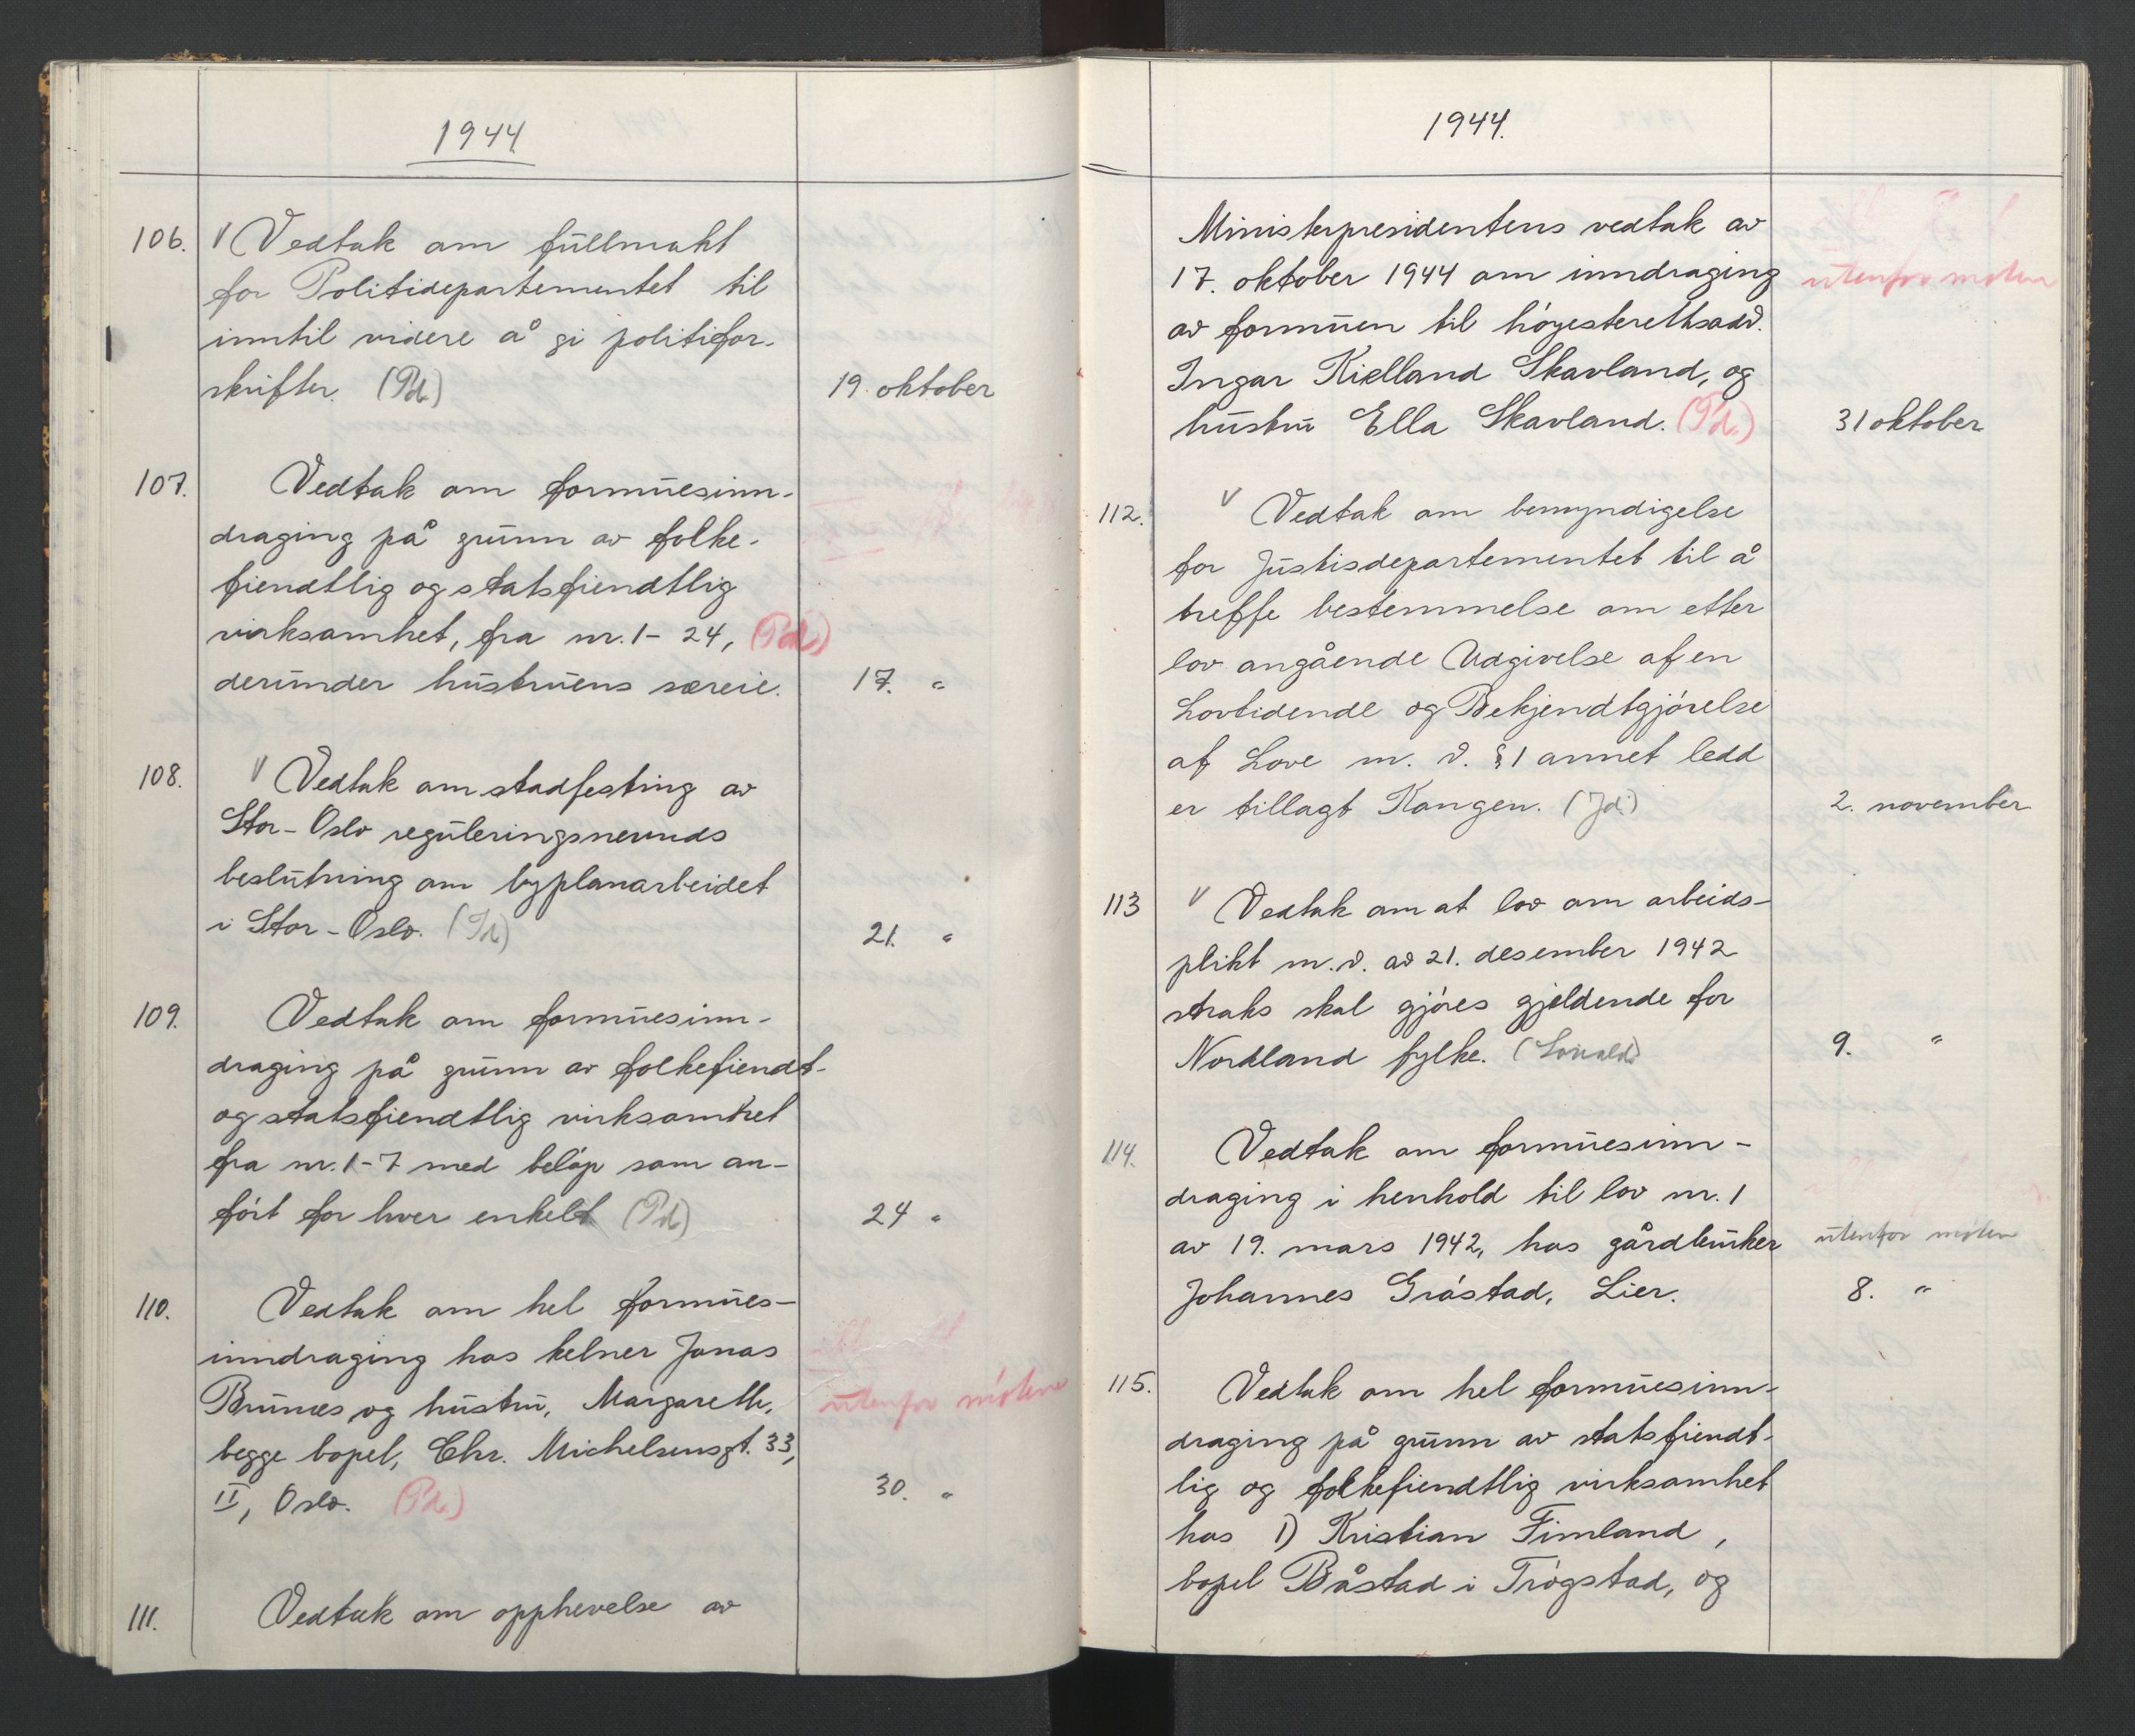 1944.
106. V Vedtak om fullmakt
for Politidepartementet til
inntil videre å gi politifor-
skrifter. (Pd.) 19. oktober
107. Vedtak om formuesinn-
draging på grunn av folke-
fiendtlig og statsfiendtlig
virksomhet, fra nr. 1- 24, (Pd.)
derunder hustruens særeie. 17. "
108. V Vedtak om stadfesting av
Stor-Oslo reguleringsnevnds
beslutning om byplanarbeidet
i Stor-Oslo. (Id) 21. "
109. Vedtak om formuesinn-
draging på grunn av folkefiendt-
og statsfiendtlig virksomhet
fra nr. 1-7 med beløp som an-
ført for hver enkelt (Pd) 24 "
110. Vedtak om hel formues-
inndraging hos kelner Jonas
Brunæs og hustru, Margarethe, utenfor møtene
begge bopel, Chr. Michelsensgt. 33,
II, Oslo. (Pd.) 30. "
111. Vedtak om opphevelse av
1944.
Ministerpresidentens vedtak av
17. oktober 1944 om inndraging utenfor møtene
av formuen til høyesterettsadv.
Ingar Kielland Skavland, og
hustru Ella Skavland. (Pd.) 31 oktober
112. V Vedtak om bemyndigelse
for Justisdepartementet til å
treffe bestemmelse om etter
lov angående Udgivelse af en
Lovtidende og Bekjendtgjørelse
af Love m. v. § 1 annet ledd
er tillagt Kongen. (Jd.) 2. november
113 V Vedtak om at lov om arbeids-
plikt m.v. av 21. desember 1942
straks skal gjøres gjeldende for
Nordland fylke. 9. "
114. Vedtak om formuesinn-
draging i henhold til lov nr. 1
av 19. mars 1942, hos gårdbruker utenfor møtene
Johannes Gråstad, Lier. 8. "
115. Vedtak om hel formuesinn-
draging på grunn av statsfiendt-
lig og folkefiendtlig virksomhet
hos 1) Kristian Fimland,
bopel Båstad i Trøgstad, og